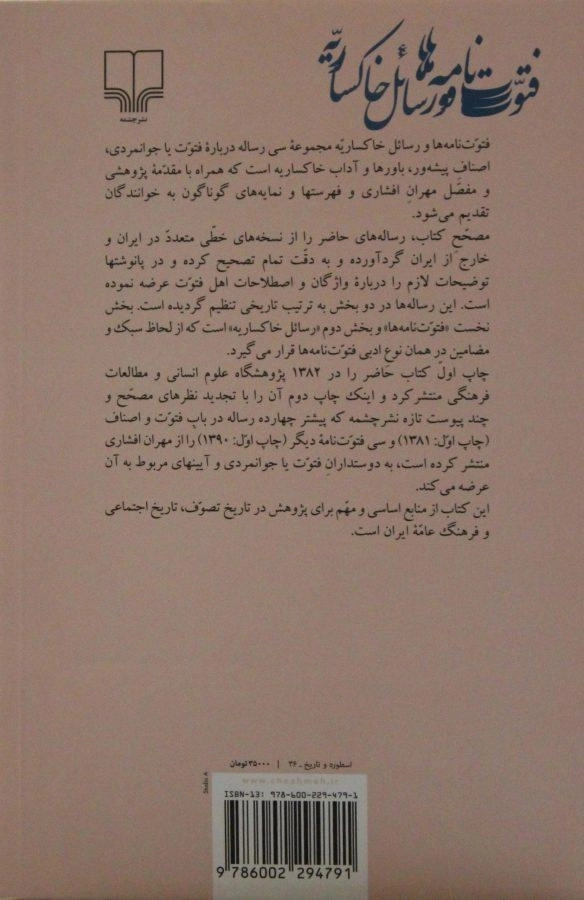 فتوّت‌نامه‌ها و رسائل خاکساریّه
نشرچشمه
فتوّت‌نامه‌ها و رسائل خاکساریّه مجموعهٔ سی رساله دربارهٔ فتوّت یا جوانمردی،
اصنافِ پیشه‌ور، باورها و آداب خاکساریه است که همراه با مقدّمهٔ پژوهشی
و مفصّل مهرانِ افشاری و فهرستها و نمایه‌های گوناگون به خوانندگان
تقدیم می‌شود.
مصحّحِ کتاب، رساله‌های حاضر را از نسخه‌های خطّی متعدّد در ایران و
خارج از ایران گردآورده و به دقّت تمام تصحیح کرده و در پانوشتها
توضیحات لازم را دربارهٔ واژگان و اصطلاحات اهل فتوّت عرضه نموده
است. این رساله‌ها در دو بخش به ترتیب تاریخی تنظیم گردیده است. بخش
نخست «فتوّت‌نامه‌ها» و بخش دوم «رسائل خاکساریه» است که از لحاظ سبک و
مضامین در همان نوعِ ادبی فتوّت‌نامه‌ها قرار می‌گیرد.
چاپ اولّ کتاب حاضر را در ۱۳۸۲ پژوهشگاه علوم انسانی و مطالعات
فرهنگی منتشر کرد و اینک چاپ دوم آن را با تجدید نظرهای مصحّح و
چند پیوست تازه نشرچشمه که پیشتر چهارده رساله در بابِ فتوّت و اصناف
(چاپ اوّل: ۱۳۸۱) و سی فتوّت‌نامهٔ دیگر (چاپ اوّل: ۱۳۹۰) را از مهران افشاری
منتشر کرده است، به دوستدارانِ فتوّت یا جوانمردی و آیینهای مربوط به آن
عرضه می‌کند.
این کتاب از منابع اساسی و مهّم برای پژوهش در تاریخ تصوّف، تاریخ اجتماعی
و فرهنگ عامّهٔ ایران است.
اسطوره و تاریخ ـ ۳۶ | ۳۵۰۰۰ تومان
www.cheshmeh.ir
Studio A
ISBN-13: 978-600-229-479-1
9 786002 294791